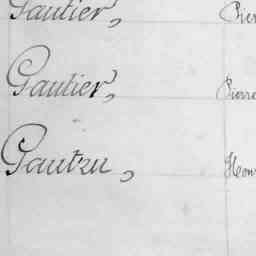 Gautier, Pier
Gautier, Pierre
Gautzu,